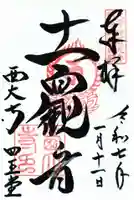 奉拝
令和七年
月十一日
十一面観音
西大寺
四王堂